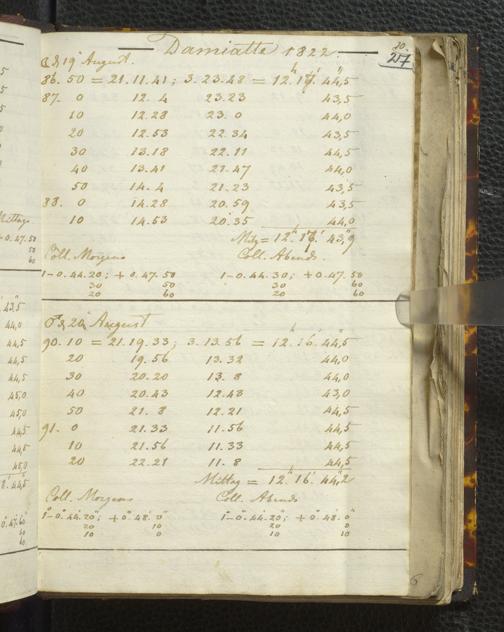 Damiatte 1822.
30.
217
19 August.
86. 50 = 21.11.41; 3.23.48 = 12. 17. 44,5
87. 0 12. 4 23.23 43,5
10 12.28 23. 0 44,0
20 12.53 22.34 43,5
30 13.18 22.11 44,5
40 13.41 21.47 44,0
50 14. 4 21.23 43,5
88. 0 14.28 20.59 43,5
10 14.53 20.35 44,0
Mitg = 12. 17. 43,9
Coll. Morgens Coll. Abends.
1-0.44.20; +0.47.50 1-0.44.30; +0.47.50
30 50 30 60
20 60 20 60
20 August
90. 10 = 21.19.33; 3.13.56 = 12. 16. 44,5
20 19.56 13.32 44,0
30 20.20 13. 8 44,0
40 20.43 12.43 43,0
50 21. 8 12.21 44,5
91. 0 21.33 11.56 44,5
10 21.56 11.33 44,5
20 22.21 11. 8 44,5
Mittag = 12. 16. 44,2
Coll. Morgens Coll. Abends
1-0.44.20; +0.48.0 1-0.44.20; +0.48.0
20 10 20 0
10 0 10 0